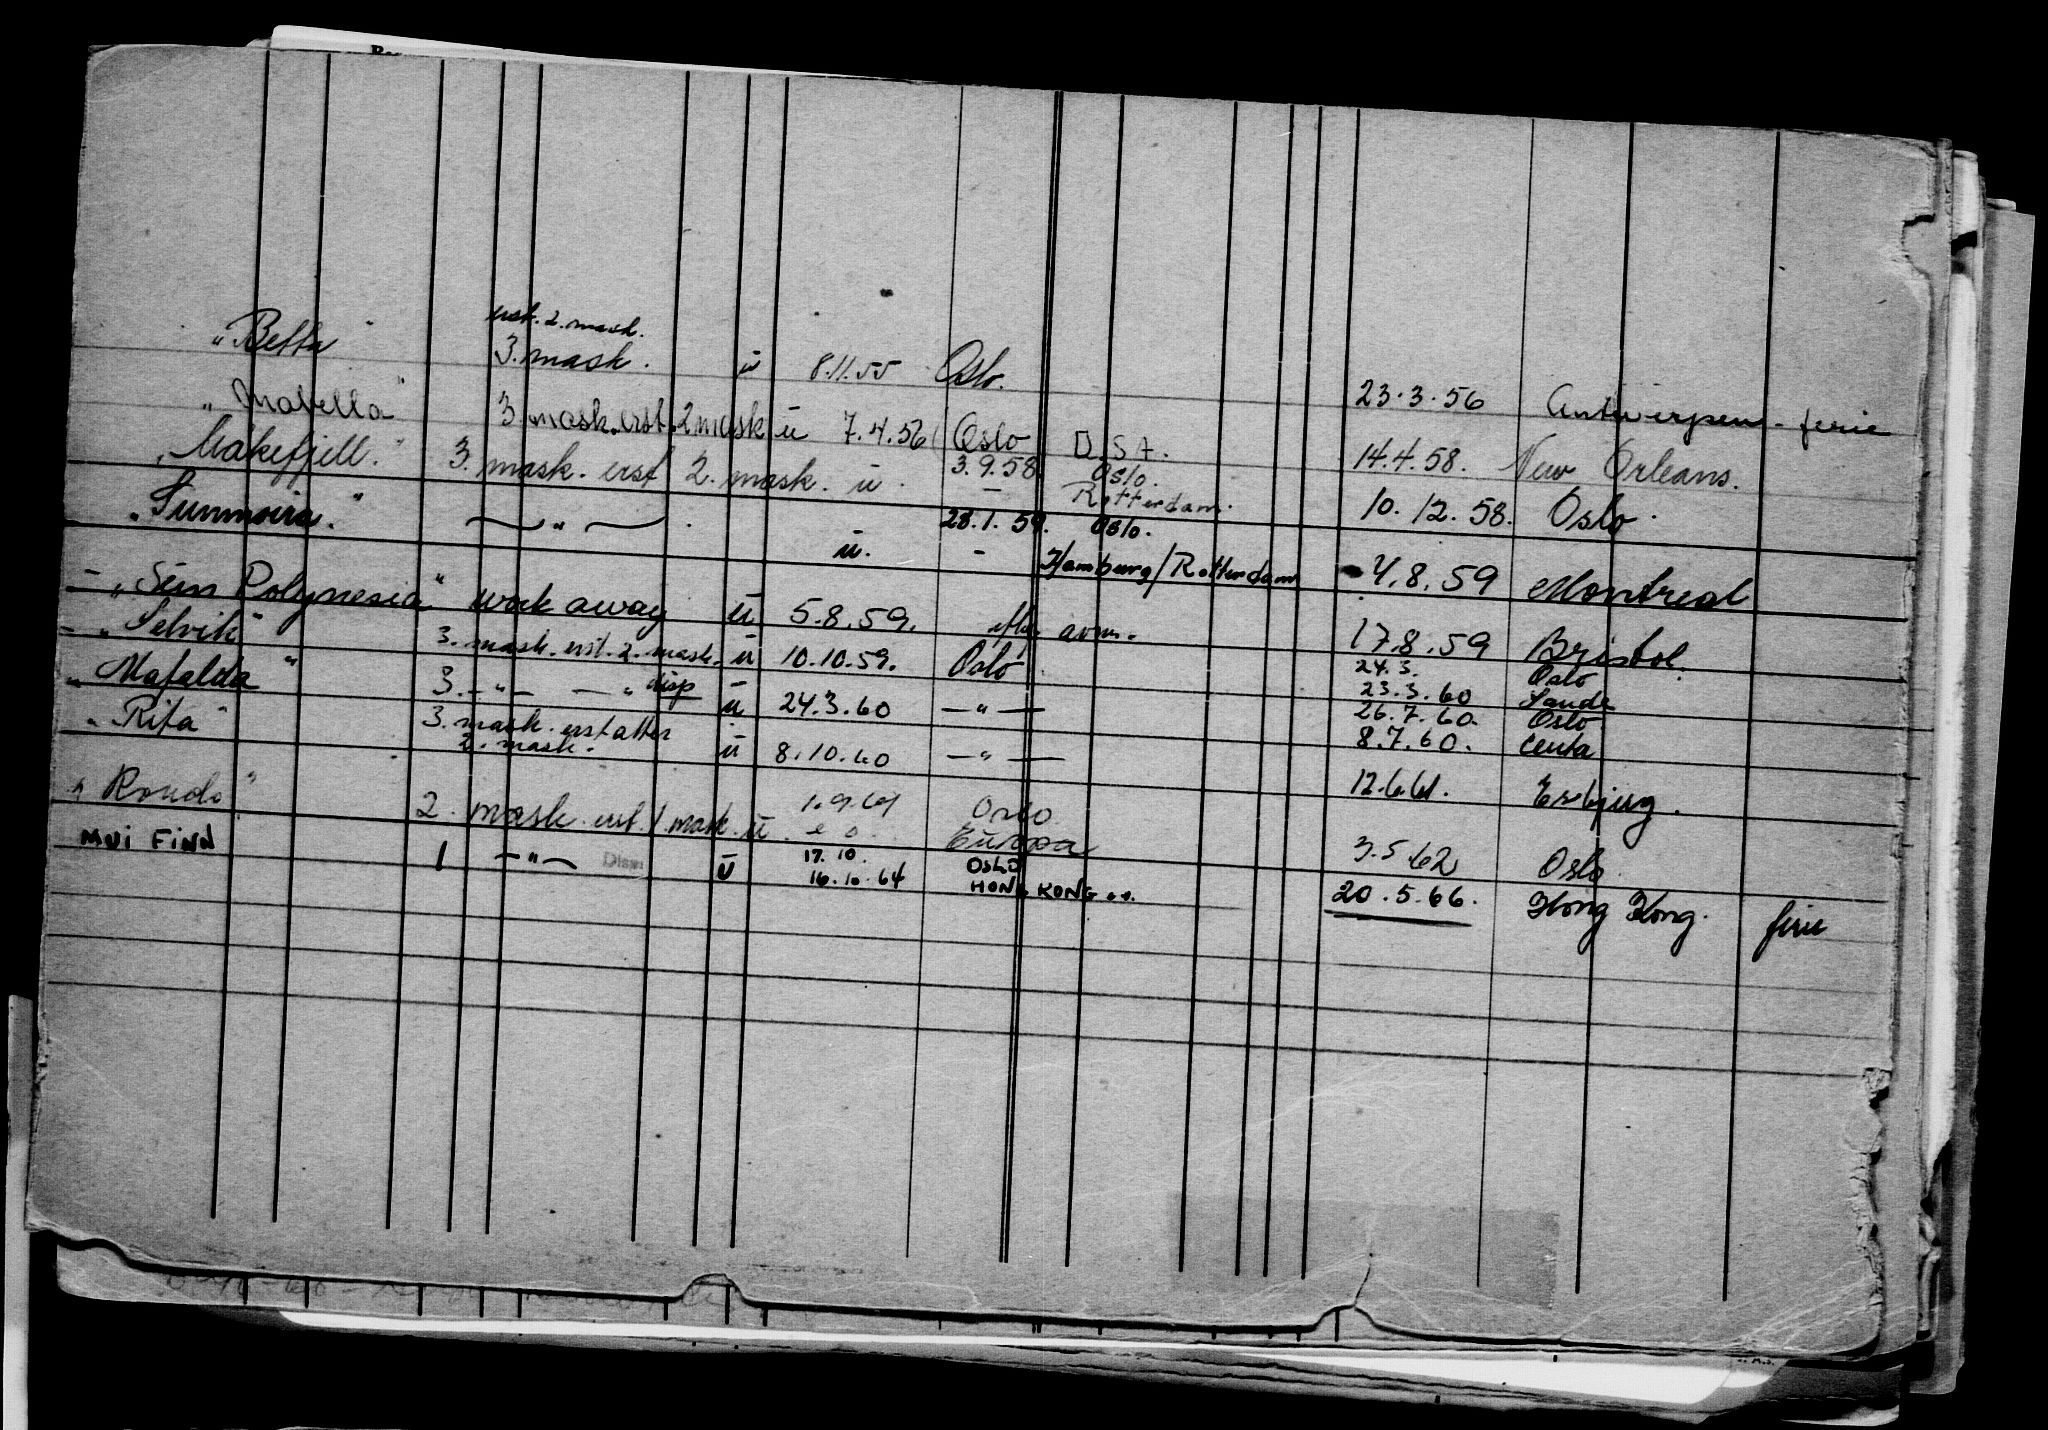 erst. 2. mask.
"Betta" 3. mask. ü 8.11.55 Oslo. 23.3.56 Antwerpen - ferie
"Mabella" 3. mask. erst. 2 mask ü 7.4.56 Oslo U.S.A. 14.4.58. New Orleans.
"Makefjell." 3. mask. erst 2. mask. ü. 3.9.58. Oslo. 10.12.58. Oslo.
— Rotterdam.
"Sunnvira." — " — . 28.1.59. Oslo.
ü. - Hamburg/Rotterdam 4.8.59 Montreal
- "Polynesia" work away ü 5.8.59. avm. 17.8.59 Bristol.
- "Selvik" 3. mask. erst. 2. mask. ü 10.10.59. Oslo 24.3. Oslo
23.3.60 Sande
"Mafalda" 3. - " - — " disp ü 24.3.60 — " — 26.7.60. Oslo
8.7.60. Ceuta
"Rita" 3. mask. erstatter
2. mask. ü 8.10.60 — " — 12.6.61. Esbjerg.
"Rondo" 2. mask. erst. 1. mask. ü 1.9.61 Oslo 3.5.62 Oslo
Europa
MUI FINN 1 — " — Disp. ü 17.10. OSLO
16.10.64 HONG KONG 20.5.66. Hong Kong. ferie